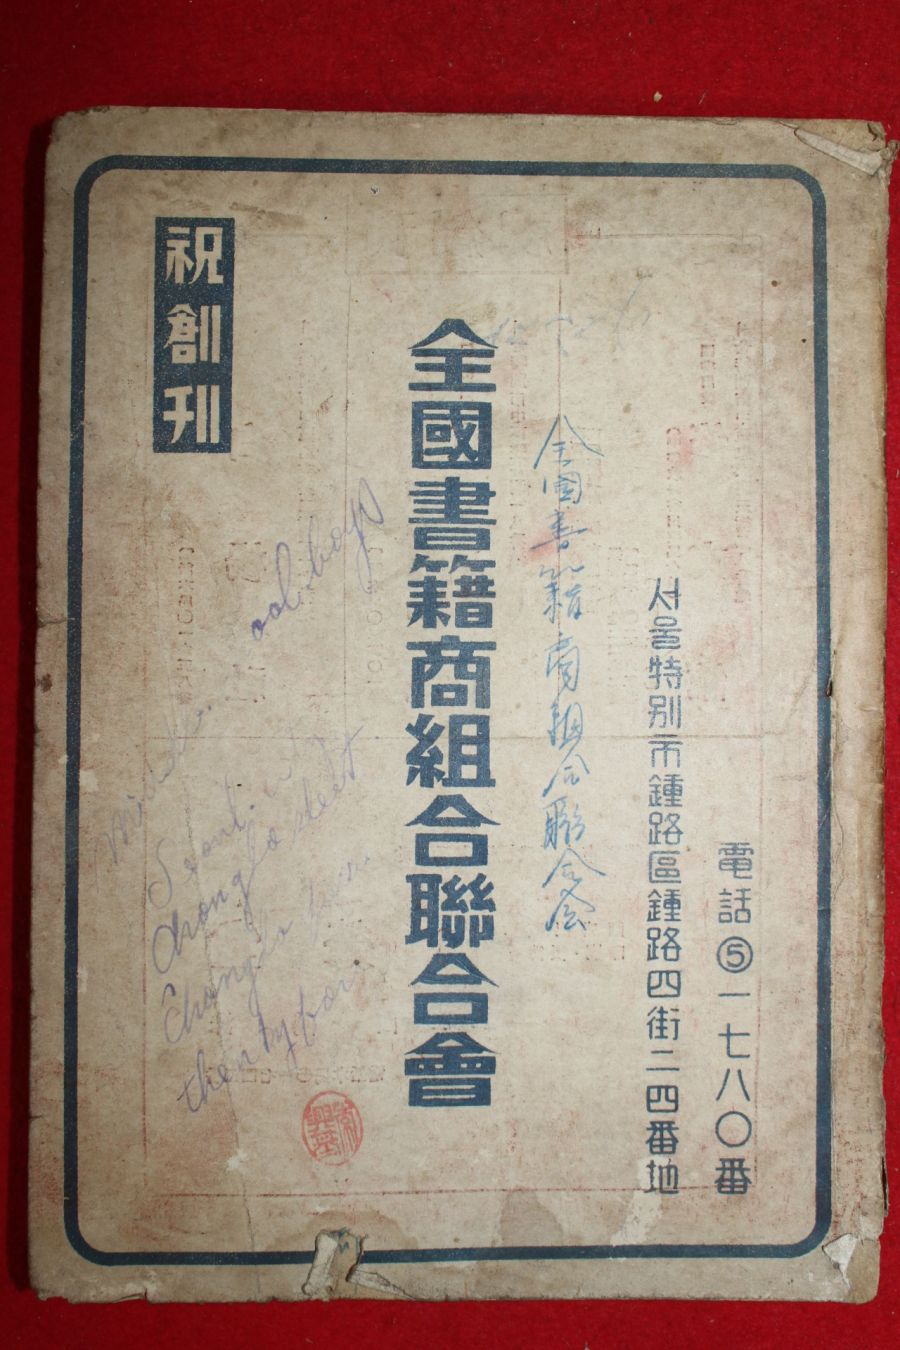 電話⑤一七八〇番
서울特別市鍾路區鍾路四街二四番地
全国書籍商組合聯合会
全國書籍商組合聯合會
祝創刊
ool boys
Seoul.
Chongro street.
Chongro